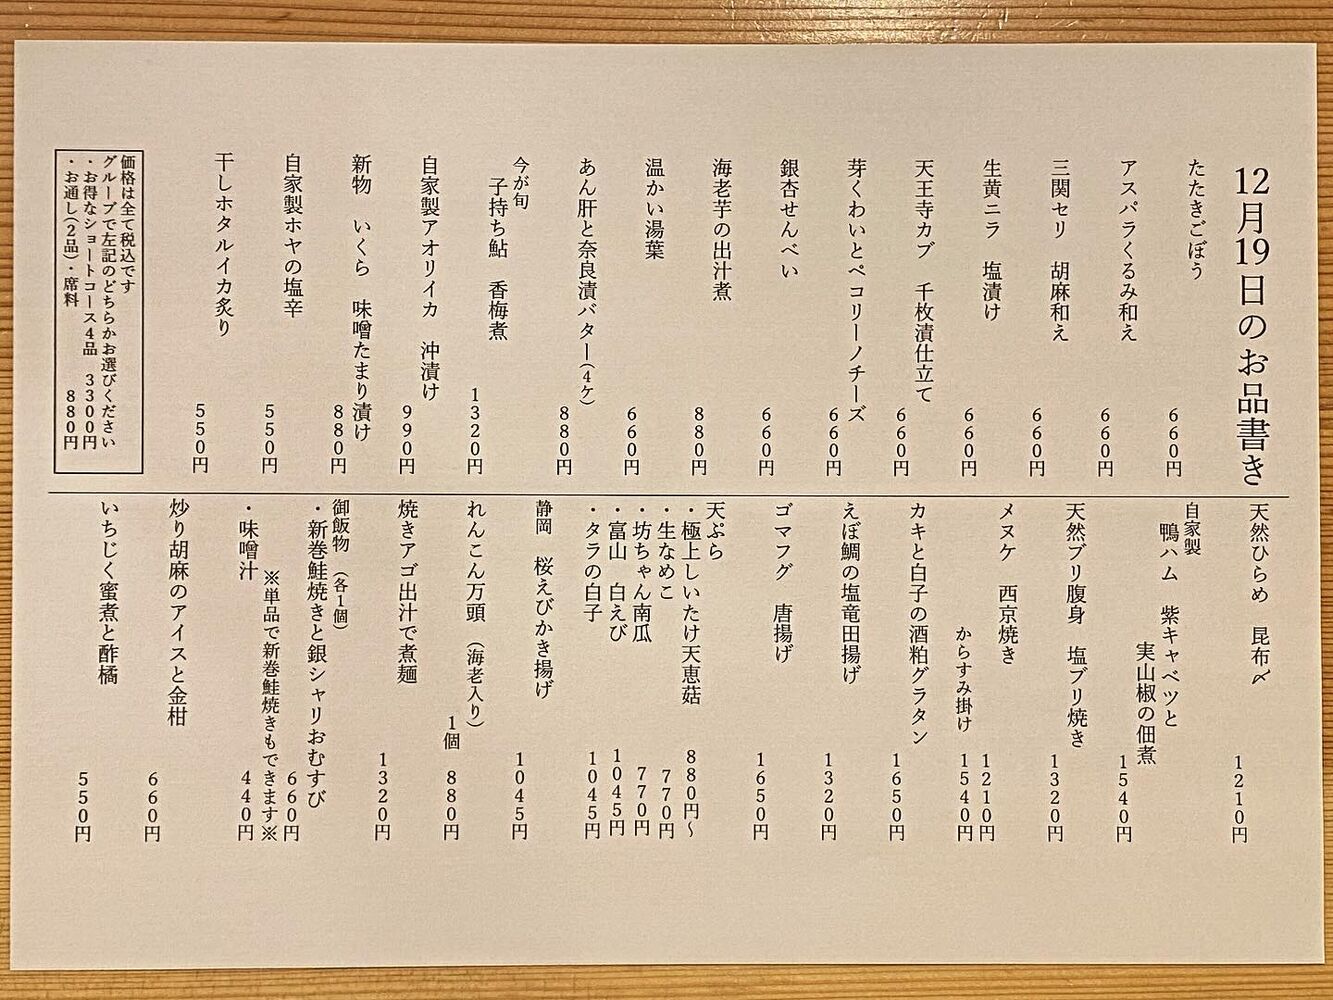 12月19日のお品書き
たたきごぼう 660円
アスパラくるみ和え 660円
三関セリ 胡麻和え 660円
生黄ニラ 塩漬け 660円
天王寺カブ 千枚漬仕立て 660円
芽くわいとペコリーノチーズ 660円
銀杏せんべい 660円
海老芋の出汁煮 880円
温かい湯葉 660円
あん肝と奈良漬バター(4ケ) 880円
今が旬
子持ち鮎 香梅煮 1320円
自家製アオリイカ 沖漬け 990円
新物 いくら 味噌たまり漬け 880円
自家製ホヤの塩辛 550円
干しホタルイカ炙り 550円
価格は全て税込です
グループで左記のどちらかお選びください
・お得なショートコース4品 3300円
・お通し(2品)・席料 880円
天然ひらめ 昆布〆 1210円
自家製
鴨ハム 紫キャベツと
実山椒の佃煮 1540円
天然ブリ腹身 塩ブリ焼き 1320円
メヌケ 西京焼き 1210円
からすみ掛け 1540円
カキと白子の酒粕グラタン 1650円
えぼ鯛の塩竜田揚げ 1320円
ゴマフグ 唐揚げ 1650円
天ぷら
・極上しいたけ天恵菇 880円〜
・生なめこ 770円
・坊ちゃん南瓜 770円
・富山 白えび 1045円
・タラの白子 1045円
静岡 桜えびかき揚げ 1045円
れんこん万頭 (海老入り) 1個 880円
焼きアゴ出汁で煮麺 1320円
御飯物 (各1個)
・新巻鮭焼きと銀シャリおむすび 660円
※単品で新巻鮭焼きもできます※
・味噌汁 440円
炒り胡麻のアイスと金柑 660円
いちじく蜜煮と酢橘 550円